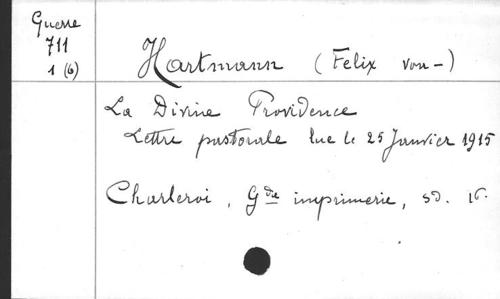 Guerre
711
1 (6)
Hartmann (Felix von-)
La Divine Providence
Lettre pastorale lue le 25 Janvier 1915
Charleroi, Gde imprimerie, sd.